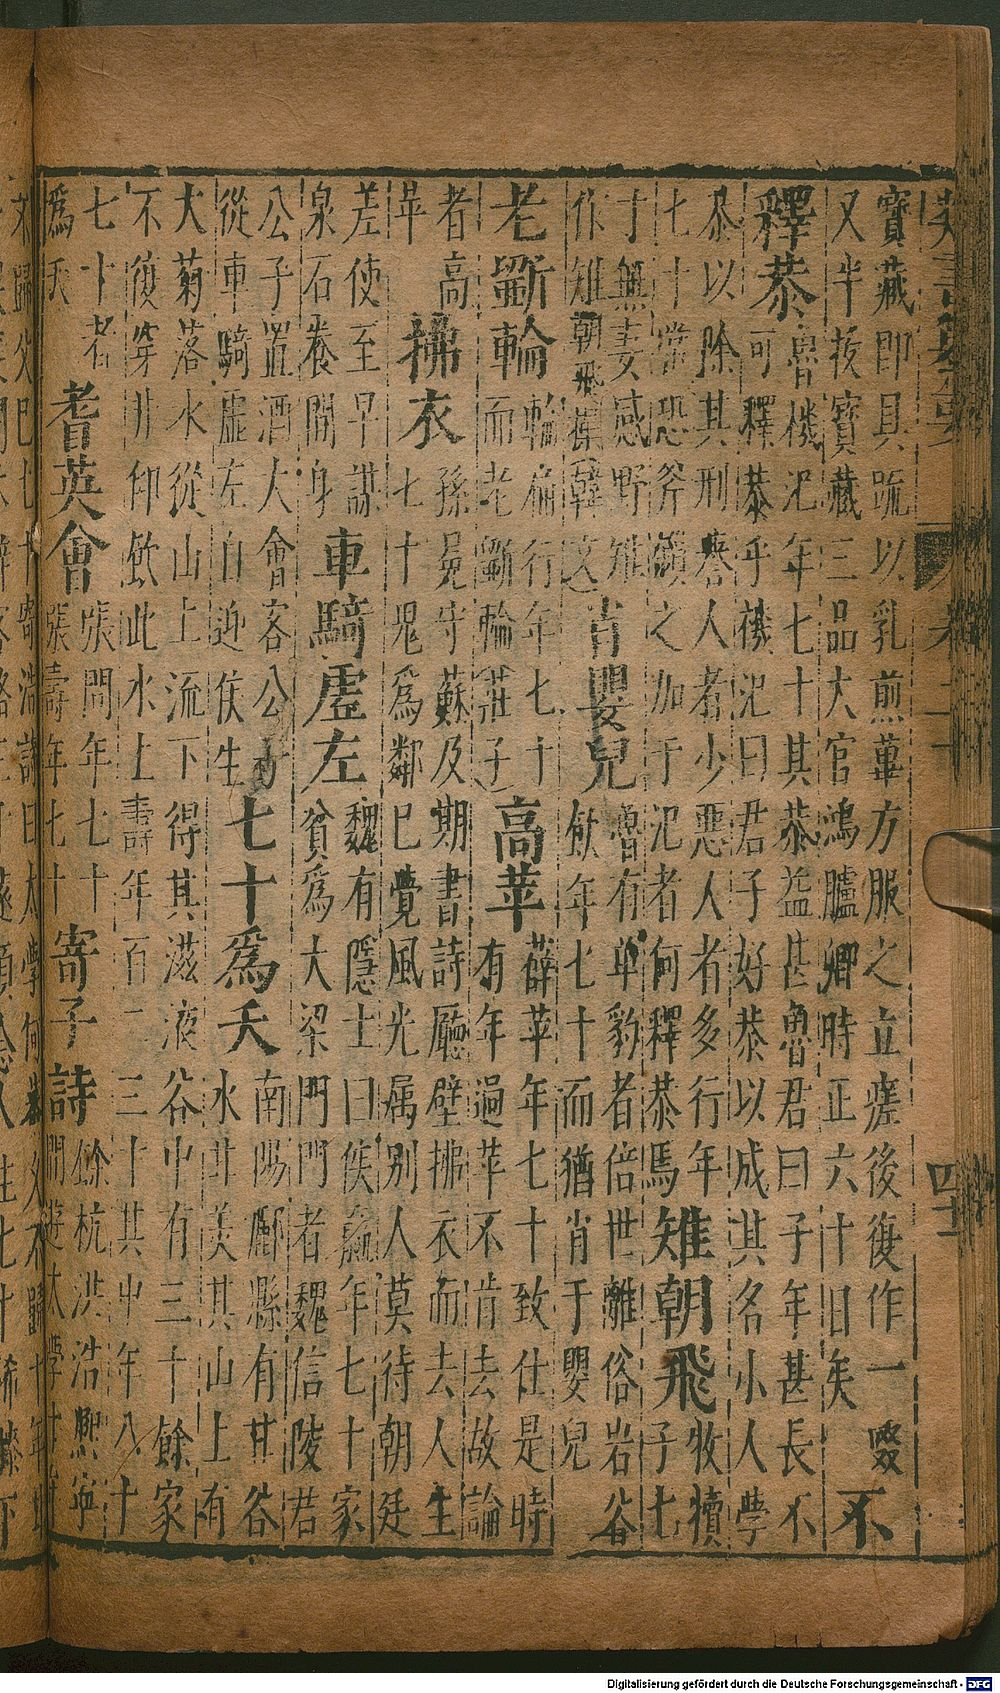 寶藏即具疏以乳煎蓽方服之立瘥後復作一啜
又半拔寶藏三品大官鴻臚卿時正六十日矣
不
釋恭
魯機氾年七十其恭益甚魯君曰子年甚長不
可釋恭乎機氾曰君子好恭以成其名小人學
恭以除其刑譽人者少惡人者多行年
七十常恐斧鑕之加于氾者何釋恭焉
雉朝飛
牧犢
子七
十無妻感野雉
作雉朝飛操韓文
肖嬰兒
魯有單豹者倍世離俗岩谷
飲年七十而猶肖于嬰兒
老斲輪
輪扁行年七十
而老斲輪莊子
高苹
薛苹年七十致仕是時
有年過苹不肯去故論
者高
苹
拂衣
孫冕守蘇及期書詩廳壁拂衣而去人生
七十鬼為鄰已覺風光属別人莫待朝廷
差使至早謀
泉石養閒身
車騎虛左
魏有隱士曰侯嬴年七十家
貧爲大梁門門者魏信陵君
公子置酒大會客公子
從車騎虛左自迎侯生
七十爲夭
南陽酈縣有甘谷
水甘美其山上有
大菊落水從山上流下得其滋液谷中有三十餘家
不復穿井仰飲此水上壽年百二三十其中年八十
七十者
爲夭
耆英會
張問年七十
張壽年七十
寄子詩
餘杭洪浩熙寧
閒遊太學十
Digitalisierung gefördert durch die Deutsche Forschungsgemeinschaft - DFG